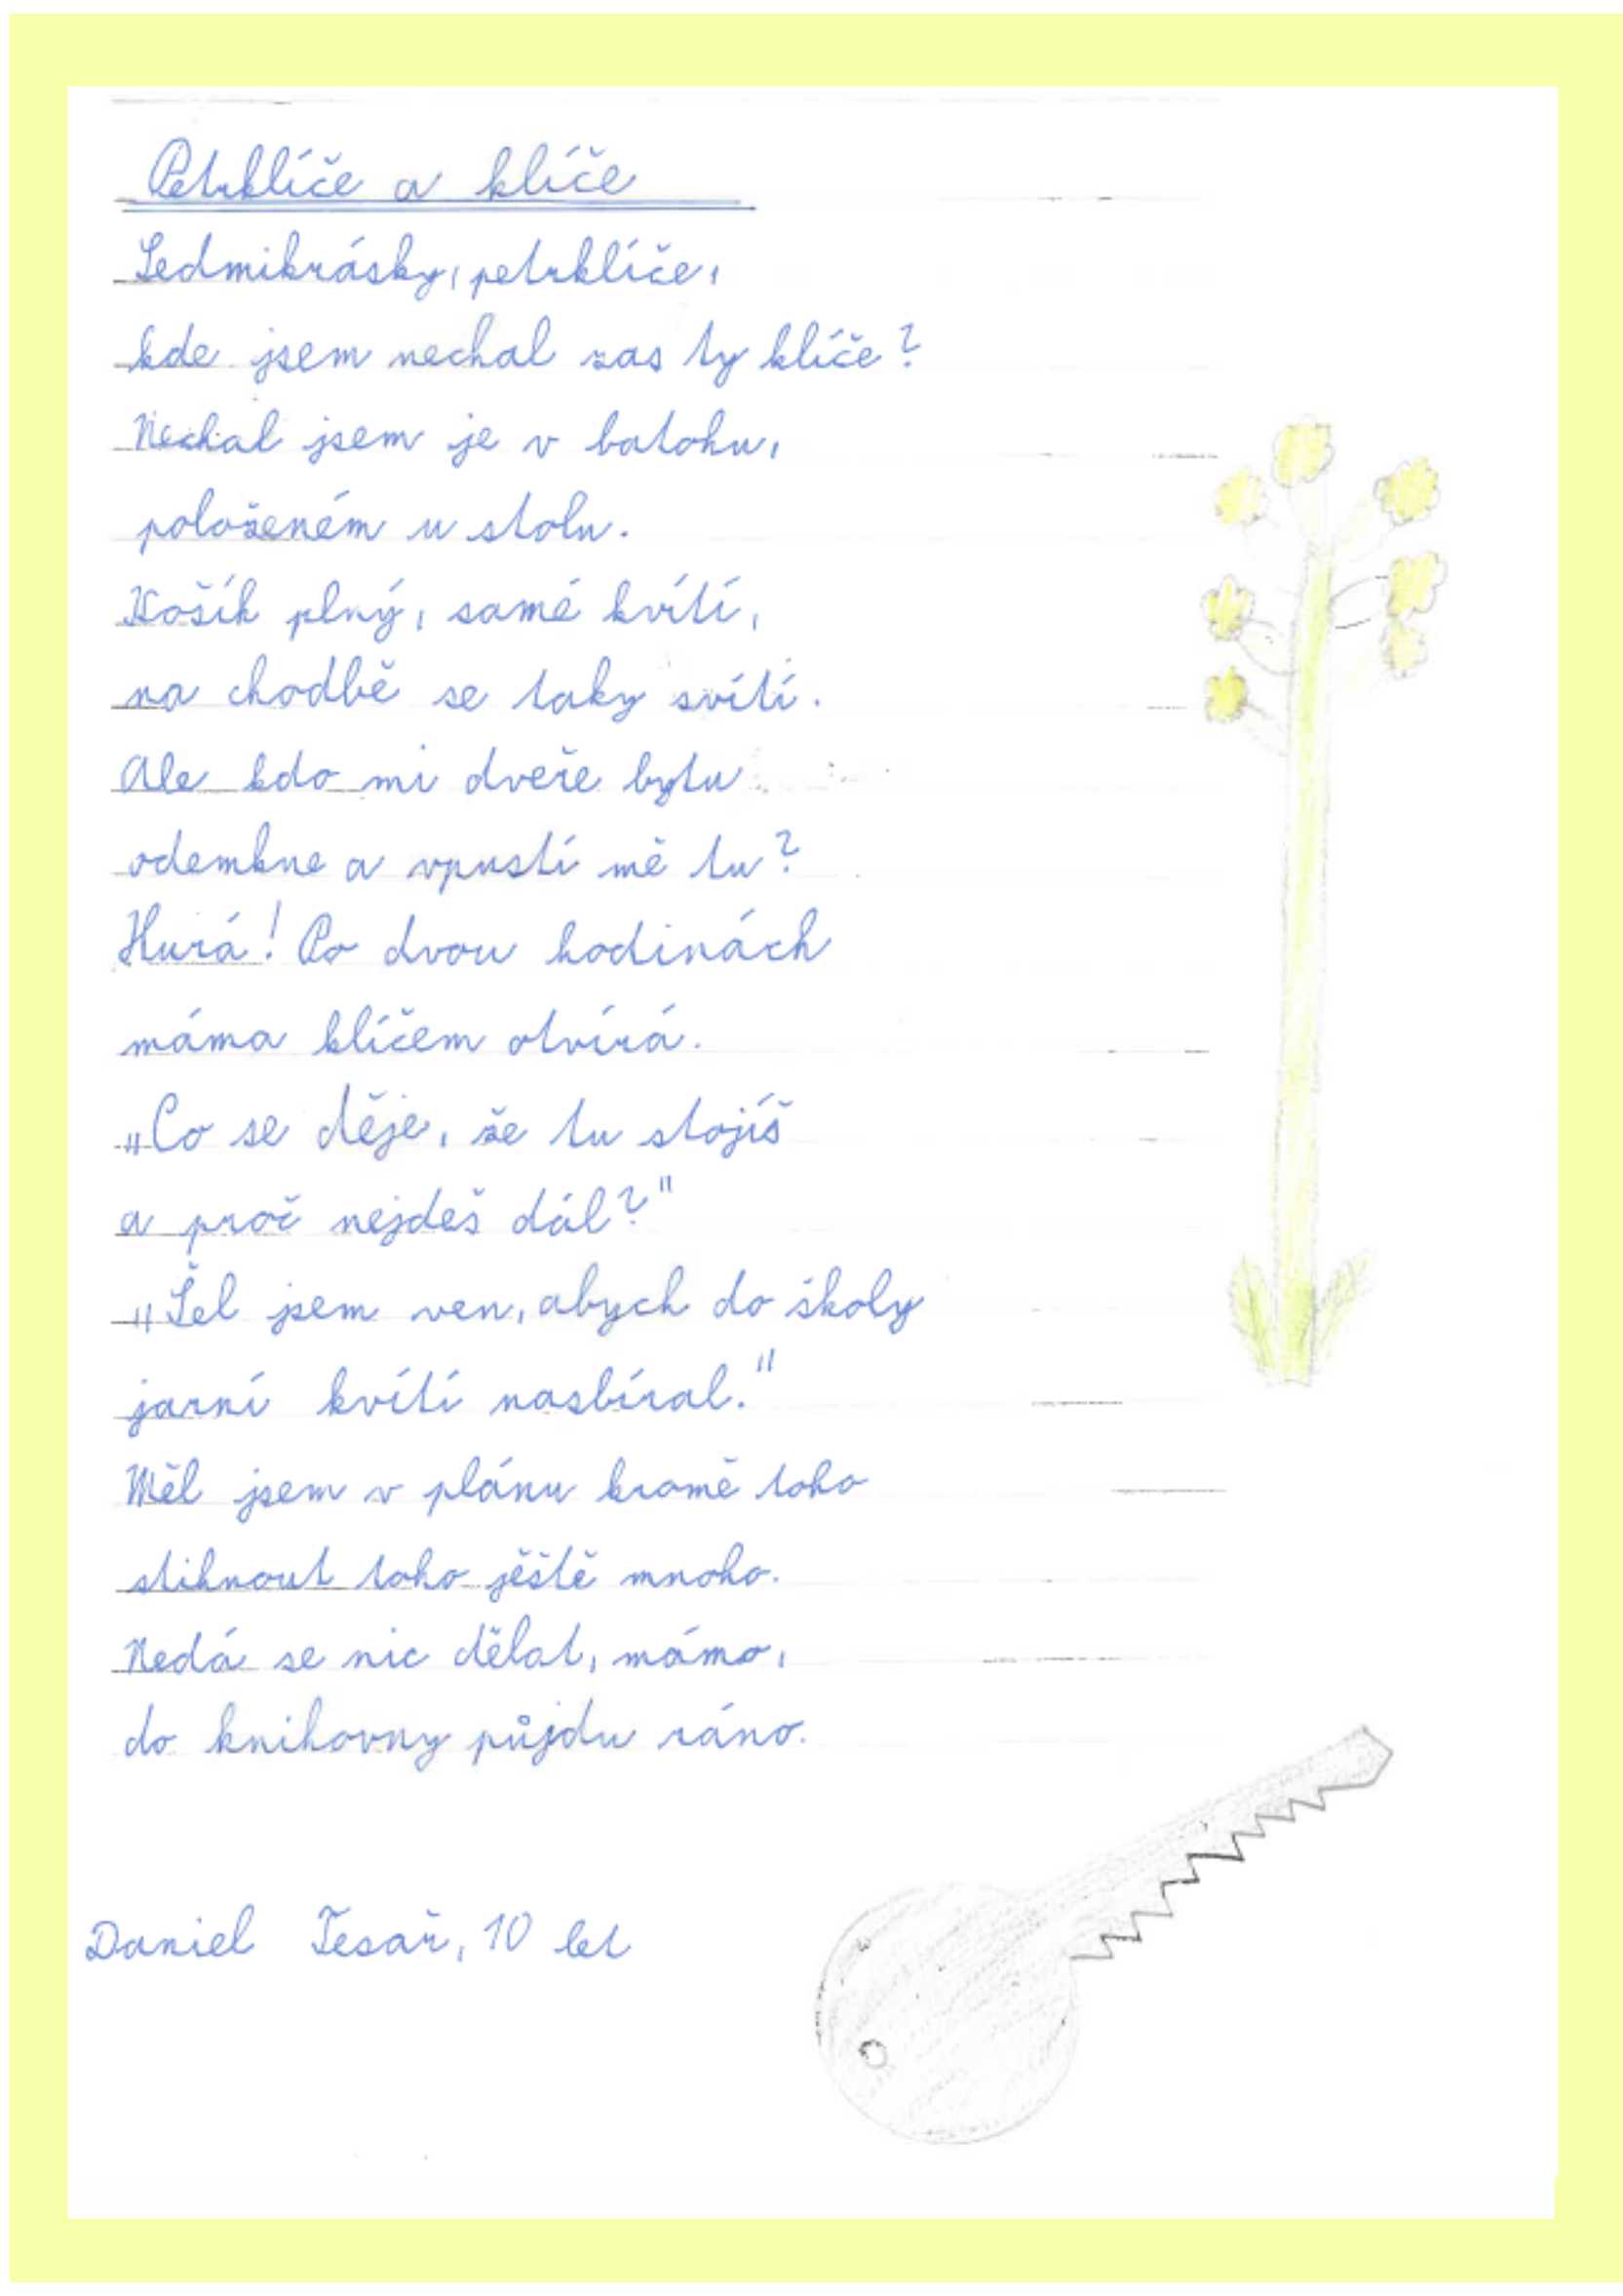 Petrklíče a klíče
Sedmikrásky, petrklíče,
kde jsem nechal zas ty klíče?
Nechal jsem je v batohu,
položeném u stolu.
Košík plný, samé kvítí,
na chodbě se taky svítí.
Ale kdo mi dveře bytu
odemkne a vpustí mě tu?
Hurá! Po dvou hodinách
máma klíčem otvírá.
„Co se děje, že tu stojíš
a proč nejdeš dál?"
„Šel jsem ven, abych do školy
jarní kvítí nasbíral."
Měl jsem v plánu kromě toho
stihnout toho ještě mnoho.
Nedá se nic dělat, mámo,
do knihovny půjdu ráno.
Daniel Tesař, 10 let